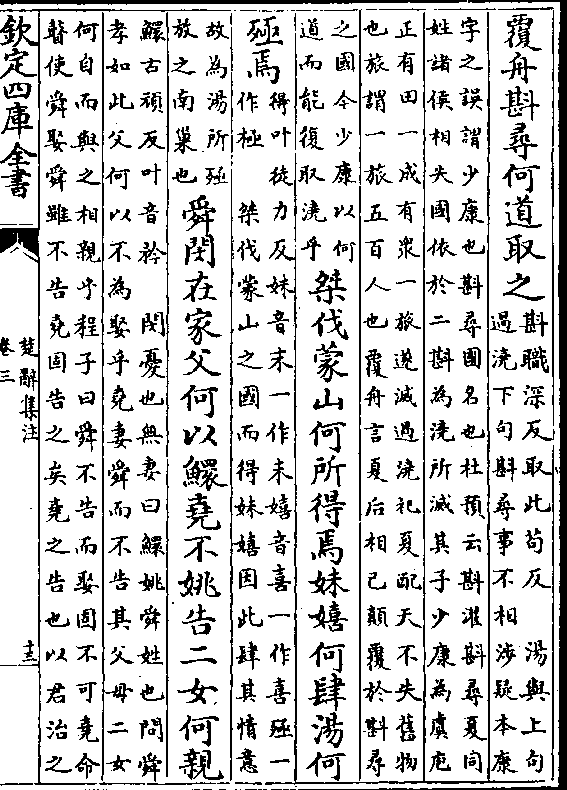 覆舟斟尋何道取之
斟職深反取此苟反　湯與上句
過澆下句斟尋事不相涉疑本康
字之誤謂少康也斟尋國名也杜預云斟灌斟尋夏同
姓諸侯相失國依於二斟為澆所滅其子少康為虞庖
正有田一成有衆一旅遂滅過澆祀夏配天不失舊物
也旅謂一旅五百人也覆舟言夏后相已顛覆於斟尋
之國今少康以何
道而能復取澆乎
桀伐蒙山何所得焉妹嬉何肆湯何
殛焉
得叶徒力反妹音末一作末嬉音喜一作喜殛一
作極　桀伐蒙山之國而得妹嬉因此肆其情意
故為湯所殛
放之南巢也
舜閔在家父何以鱞堯不姚告二女何親
鱞古頑反叶音矜　閔憂也無妻曰鱞姚舜姓也問舜
孝如此父何以不為娶乎堯妻舜而不告其父母二女
何自而與之相親乎程子曰舜不告而娶固不可堯命
瞽使舜娶舜雖不告堯固告之矣堯之告也以君治之
欽定四庫全書
楚辭集注
卷三
十三